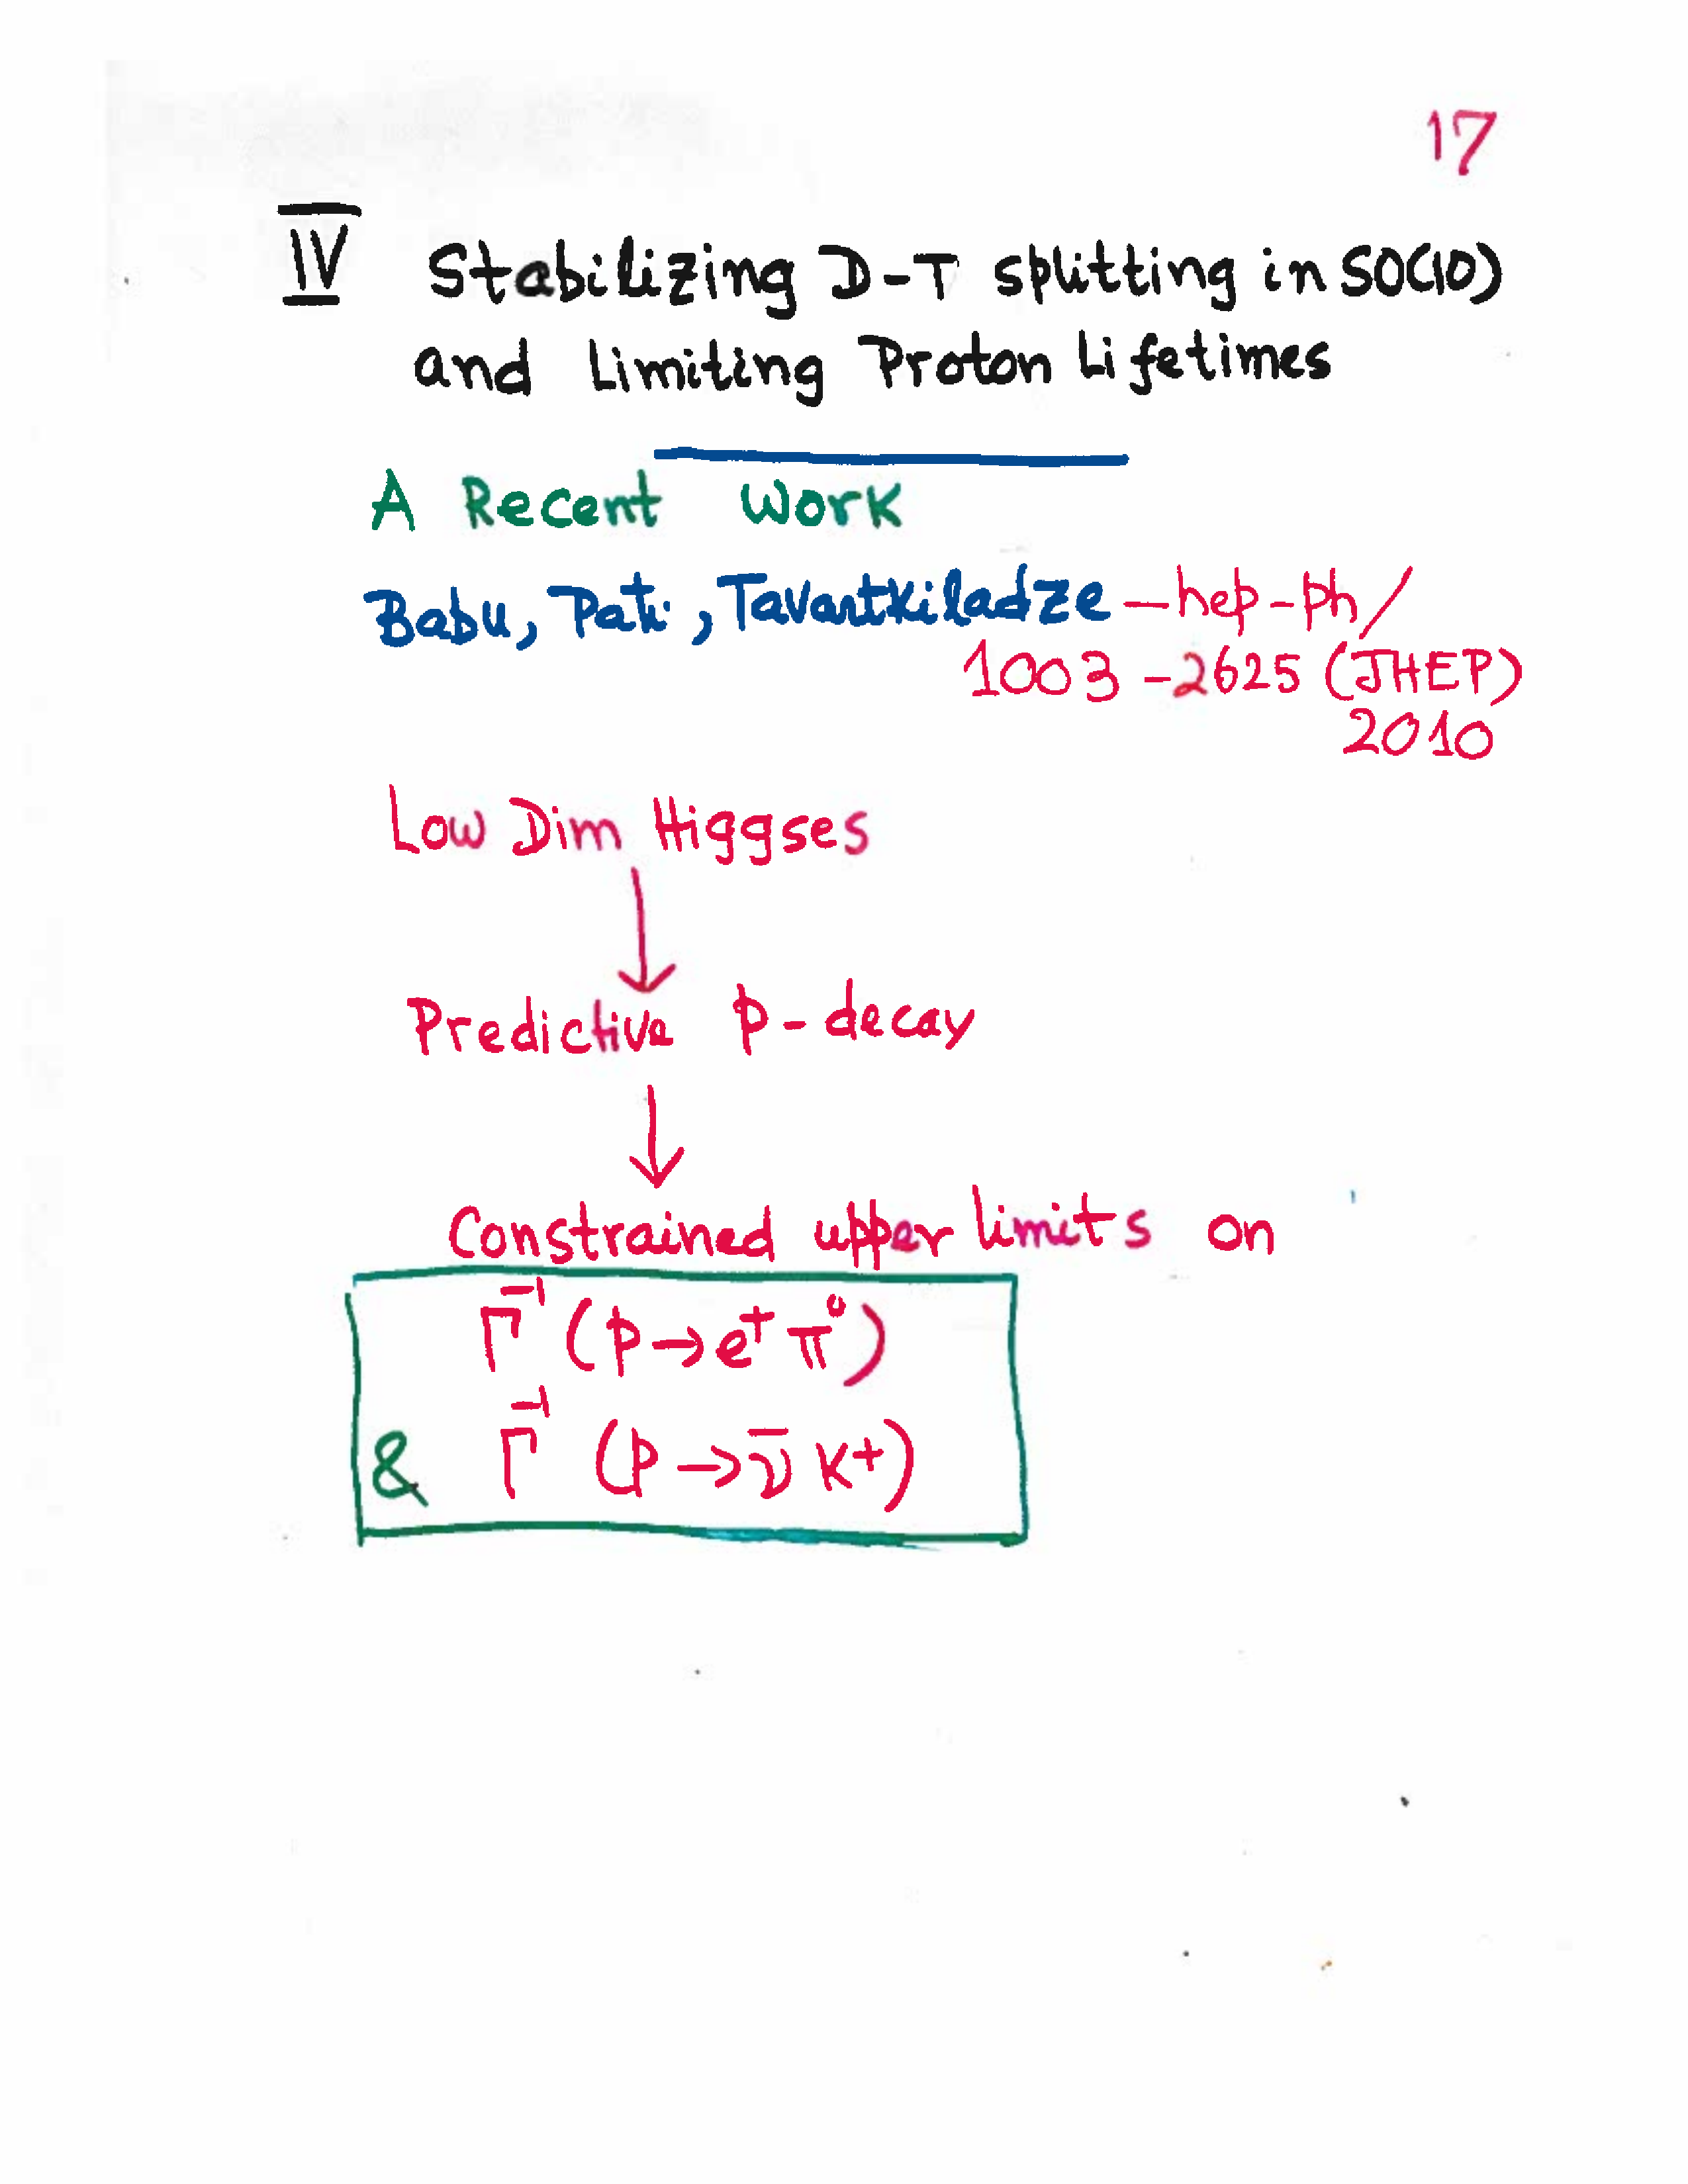 17
IV Stabilizing D-T splitting in SO(10)
and Limiting Proton Lifetimes
A Recent Work
Babu, Pati, Tavartkiladze — hep-ph/
1003-2625 (JHEP)
2010
Low Dim Higgses
↓
Predictive p-decay
↓
Constrained upper limits on
Γ⁻¹ (p→e⁺π⁰)
& Γ⁻¹ (p→ν̄ K⁺)